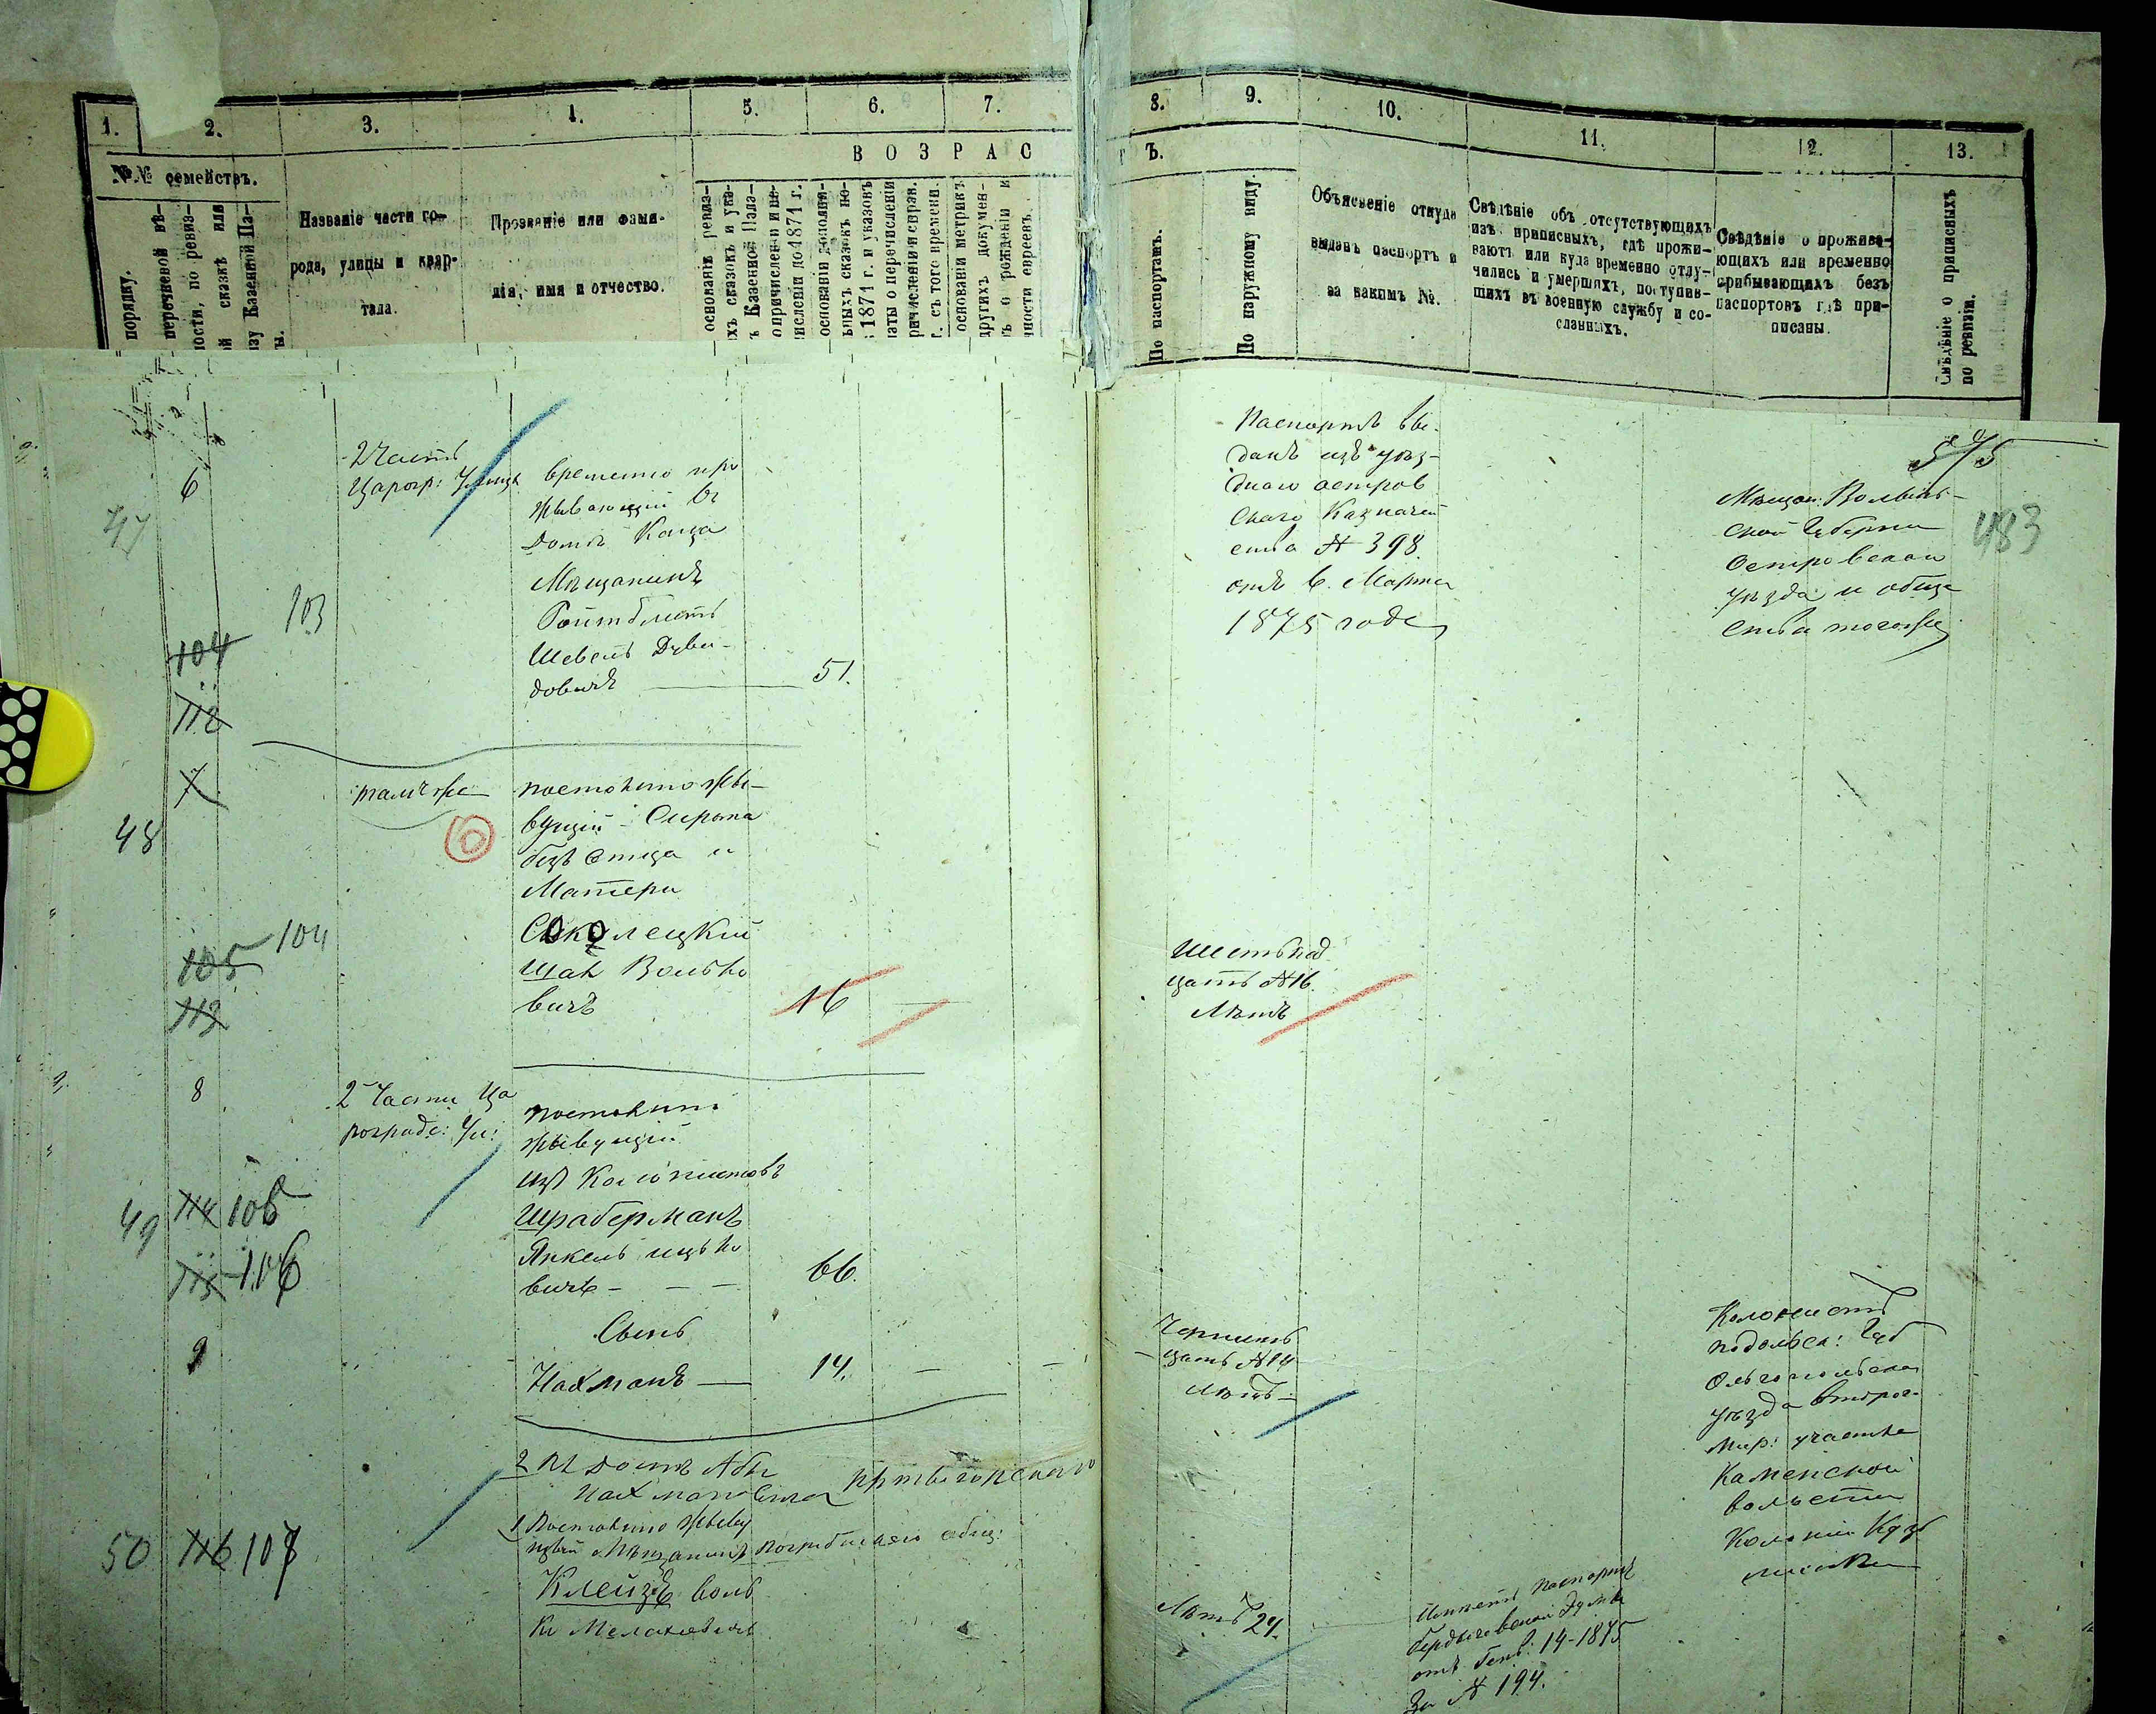 1.
2.
3.
4.
5.
6.
7.
8.
9.
10.
11.
12.
13.
В О З Р А С
Т Ъ.
№№ семействъ.
порядку.
перечневой вѣ-
ности, по ревиз-
ой сказкѣ или
Казенной Па-
Названіе части го-
рода, улицы и квар-
тала.
Прозваніе или фами-
лія, имя и отчество.
основаніи ревиз-
хъ сказокъ и ука-
ъ Казенной Пала-
о причисленіи и
численіи до 1871 г.
основаніи дополни-
ьныхъ сказокъ по-
1871 г. и указовъ
латы о перечисленіи
г. съ того времени.
основаніи метрикъ
другихъ докумен-
ъ о рожденіи и
ности евреевъ.
По паспортамъ.
По наружному виду.
Объясненіе откуда
выданъ паспортъ и
за какимъ №.
Свѣдѣніе объ отсутствующихъ
изъ приписныхъ, гдѣ прожи-
ваютъ или куда временно отлу-
чились и умершихъ, поступив-
шихъ въ военную службу и со-
сланныхъ.
Свѣдѣніе о прожива-
ющихъ или временно
прибывающихъ безъ
паспортовъ гдѣ при-
писаны.
Свѣдѣніе о приписныхъ
по ревизіи.
483
47
6
103
104
112
2 Часть
Царогр: Улица
Временно про
живающій въ
домѣ Каца
Мѣщанинъ
Ройтблатъ
Шевель Дуви-
довичъ
51.
Паспортъ вы-
данъ изъ уѣз-
днаго остров
скаго Казначей
ства № 398
отъ 6. Марта
1875 года
Мѣщан. Волынь-
ской Губерни
Островскаго
уѣзда и обще
ства тогоже
7
48
104
105
113
тамъ же
6
постоянно жы-
вущій - Сирота
безъ Отца и
Матери
Соколецкій
Шая Волько
вичъ
16
Шестьнад
цать №16.
Лѣтъ
8
49
114 106
115 106
9
2 Части Ца
роградс: Ул:
постоянно
жывущій
изъ Колонистовъ
Шраберманъ
Янкель Ицько
вичъ
66.
Сынъ
Нахманъ
14.
цать №14
Лѣтъ
Колонистъ
Подольск: Губ
Ольгопольскаго
уѣзда второго
Мир: участка
Каменской
волости
Колоніи
2 въ домѣ Абы
Нахмановича
1 Постоянно жыву
щый Мѣщанинъ Погребискаго общ:
50 116 107
Клейзъ Воль
ко Мелаховичъ
Лѣтъ 24.
Имѣетъ Паспортъ
Бердычевской Думы
отъ Генв: 14-1875
За № 194.